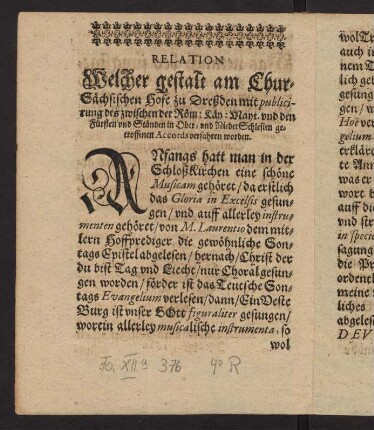 RELATION
Welcher gestalt am Chur-
Sächsischen Hofe zu Dreßden mit publici-
rung des zwischen der Röm: Käy: Mayt. vnd den
Fürsten vnd Ständen in Ober- vnd NiderSchlesien ge-
troffenen Accords verfahren worden.
ANfangs hatt man in der
Schloßkirchen eine schöne
Musicam gehöret / da erstlich
das Gloria in Excelsis gesun-
gen / vnd auff allerley instru-
menten gehöret / von M. Laurentio dem mit-
lern Hoffprediger die gewöhnliche Son-
tags Epistel abgelesen / hernach / Christ der
du bist Tag vnd Liecht / nur Choral gesun-
gen worden / förder ist das Teutsche Son-
tags Evangelium verlesen / dann / Ein Veste
Burg ist vnser Gott figuraliter gesungen /
worein allerley musicalische instrumenta, so
wol
Fo. XII a 376 4° R
wol Tr
auch i
nem T
lich gel
gesung
gen / w
Hoë ver
gelium
erkläre
te Ann
was er
wort b
auff die
vnd str
in speci
sagung
die Pr
ordene
meine
liches
abgeles
DEV